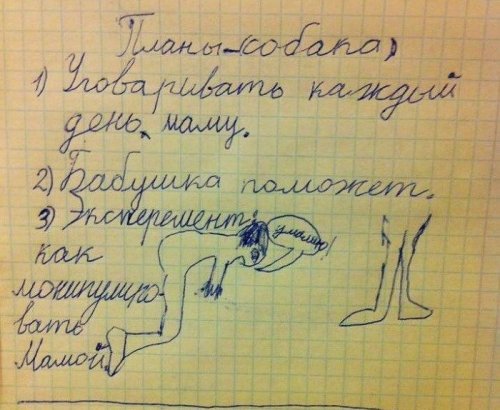 Планы - (собака)
1) Уговаривать каждый
день маму.
2) Бабушка поможет.
3) Эксперемент:
умаляю!
как
монипулиро-
вать
Мамой.